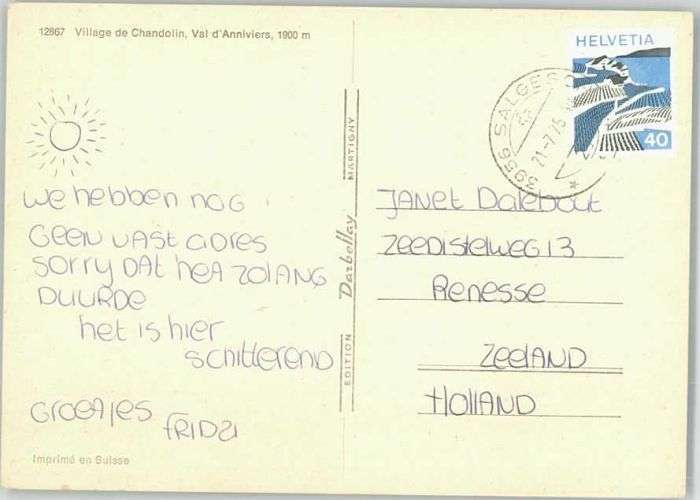 12867 Village de Chandolin, Val d'Anniviers, 1900 m
we hebben nog
geen vast adres
sorry dat het zolang
duurde
het is hier
schitterend
Groetjes
Imprimé en Suisse
EDITION Darbellay MARTIGNY
HELVETIA
40
3956 SALGESCH
21-7-75
JANET Dalebout
Zeedistelweg 13
Renesse
Zeeland
Holland